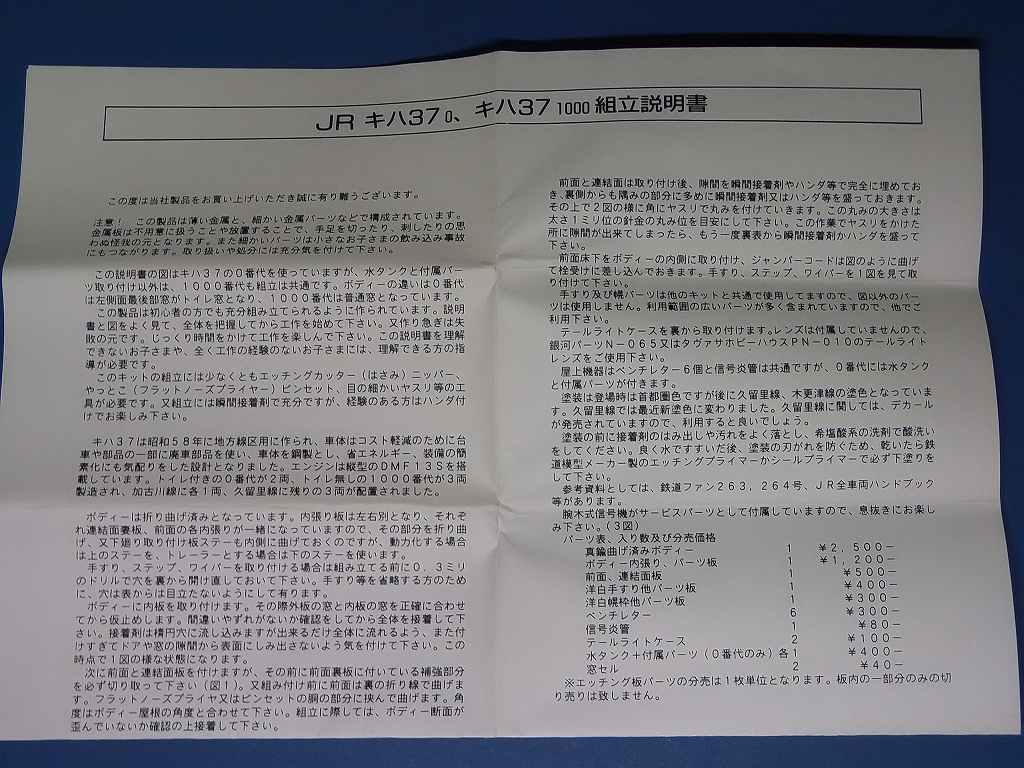 JR キハ37 0、キハ37 1000 組立説明書
この度は当社製品をお買い上げいただき誠に有り難うございます。
注意！ この製品は薄い金属と、細かい金属パーツなどで構成されています。
金属板は不用意に扱うことや放置することで、手足を切ったり、刺したりの思
わぬ怪我の元となります。また細かいパーツは小さなお子さまの飲み込み事故
にもつながります。取り扱いや処分には充分気を付けて下さい。
この説明書の図はキハ37の0番代を使っていますが、水タンクと付属パー
ツ取り付け以外は、1000番代も組立は共通です。ボディーの違いは0番代
は左側面最後部窓がトイレ窓となり、1000番代は普通窓となっています。
この製品は初心者の方でも充分組み立てられるように作られています。説明
書と図をよく見て、全体を把握してから工作を始めて下さい。又作り急ぎは失
敗の元です。じっくり時間をかけて工作を楽しんで下さい。この説明書を理解
できないお子さまや、全く工作の経験のないお子さまには、理解できる方の指
導が必要です。
このキットの組立には少なくともエッチングカッター（はさみ）ニッパー、
やっとこ（フラットノーズプライヤー）ピンセット、目の細かいヤスリ等の工
具が必要です。又組立には瞬間接着剤で充分ですが、経験のある方はハンダ付
けでお楽しみ下さい。
キハ37は昭和58年に地方線区用に作られ、車体はコスト軽減のために台
車や部品の一部に廃車部品を使い、車体を鋼製とし、省エネルギー、装備の簡
素化にも気配りをした設計となりました。エンジンは縦型のDMF13Sを搭
載しています。トイレ付きの0番代が2両、トイレ無しの1000番代が3両
製造され、加古川線に各1両、久留里線に残りの3両が配置されました。
ボディーは折り曲げ済みとなっています。内張り板は左右別となり、それぞ
れ連結面妻板、前面の各内張りが一緒になっていますので、その部分を折り曲
げ、又下廻り取り付け板ステーも内側に曲げておくのですが、動力化する場合
は上のステーを、トレーラーとする場合は下のステーを使います。
手すり、ステップ、ワイパーを取り付ける場合は組み立てる前に0.3ミリ
のドリルで穴を裏から開け直しておいて下さい。手すり等を省略する方のため
に、穴は表からは目立たないようにして有ります。
ボディーに内板を取り付けます。その際外板の窓と内板の窓を正確に合わせ
てから仮止めします。間違いやずれがないか確認をしてから全体を接着して下
さい。接着剤は楕円穴に流し込みますが出来るだけ全体に流れるよう、また付
けすぎてドアや窓の隙間から表面にしみ出さないよう気を付けて下さい。この
時点で1図の様な状態になります。
次に前面と連結面板を付けますが、その前に前面裏板に付いている補強部分
を必ず切り取って下さい（図1）。又組み付け前に前面は裏の折り線で曲げま
す。フラットノーズプライヤ又はピンセットの胴の部分に挟んで曲げます。角
度はボディー屋根の角度と合わせて下さい。組立に際しては、ボディー断面が
歪んでいないか確認の上接着して下さい。
前面と連結面は取り付け後、隙間を瞬間接着剤やハンダ等で完全に埋めてお
き、裏側からも隅みの部分に多めに瞬間接着剤又はハンダ等を盛っておきます。
その上で2図の様に角にヤスリで丸みを付けていきます。この丸みの大きさは
太さ1ミリ位の針金の丸み位を目安にして下さい。この作業でヤスリをかけた
所に隙間が出来てしまったら、もう一度裏表から瞬間接着剤かハンダを盛って
下さい。
前面床下をボディーの内側に取り付け、ジャンパーコードは図のように曲げ
て栓受けに差し込んでおきます。手すり、ステップ、ワイパーを1図を見て取
り付けて下さい。
手すり及び幌パーツは他のキットと共通で使用してますので、図以外のパー
ツは使用しません。利用範囲の広いパーツが多く含まれていますので、他でご
利用下さい。
テールライトケースを裏から取り付けます。レンズは付属していませんので、
銀河パーツN－065又はタヴァサホビーハウスPN－010のテールライト
レンズをご使用下さい。
屋上機器はベンチレター6個と信号炎管は共通ですが、0番代には水タンク
と付属パーツが付きます。
塗装は登場時は首都圏色ですが後に久留里線、木更津線の塗色となっていま
す。久留里線では最近新塗色に変わりました。久留里線に関しては、デカール
が発売されていますので、利用すると良いでしょう。
塗装の前に接着剤のはみ出しや汚れをよく落とし、希塩酸系の洗剤で酸洗い
をしてください。良く水ですすいだ後、塗装の刃がれを防ぐため、乾いたら鉄
道模型メーカー製のエッチングプライマーかシールプライマーで必ず下塗りを
して下さい。
参考資料としては、鉄道ファン263，264号、JR全車両ハンドブック
等があります。
腕木式信号機がサービスパーツとして付属していますので、息抜きにお楽し
み下さい。（3図）
パーツ表、入り数及び分売価格
真鍮曲げ済みボディー 1 ￥2，500－
ボディー内張り、パーツ板 1 ￥1，200－
前面、連結面板 1 ￥500－
洋白手すり他パーツ板 1 ￥400－
洋白幌枠他パーツ板 1 ￥300－
ベンチレター 6 ￥300－
信号炎管 1 ￥80－
テールライトケース 2 ￥100－
水タンク＋付属パーツ（0番代のみ）各1 ￥400－
窓セル 2 ￥40－
※エッチング板パーツの分売は1枚単位となります。板内の一部分のみの切
り売りは致しません。